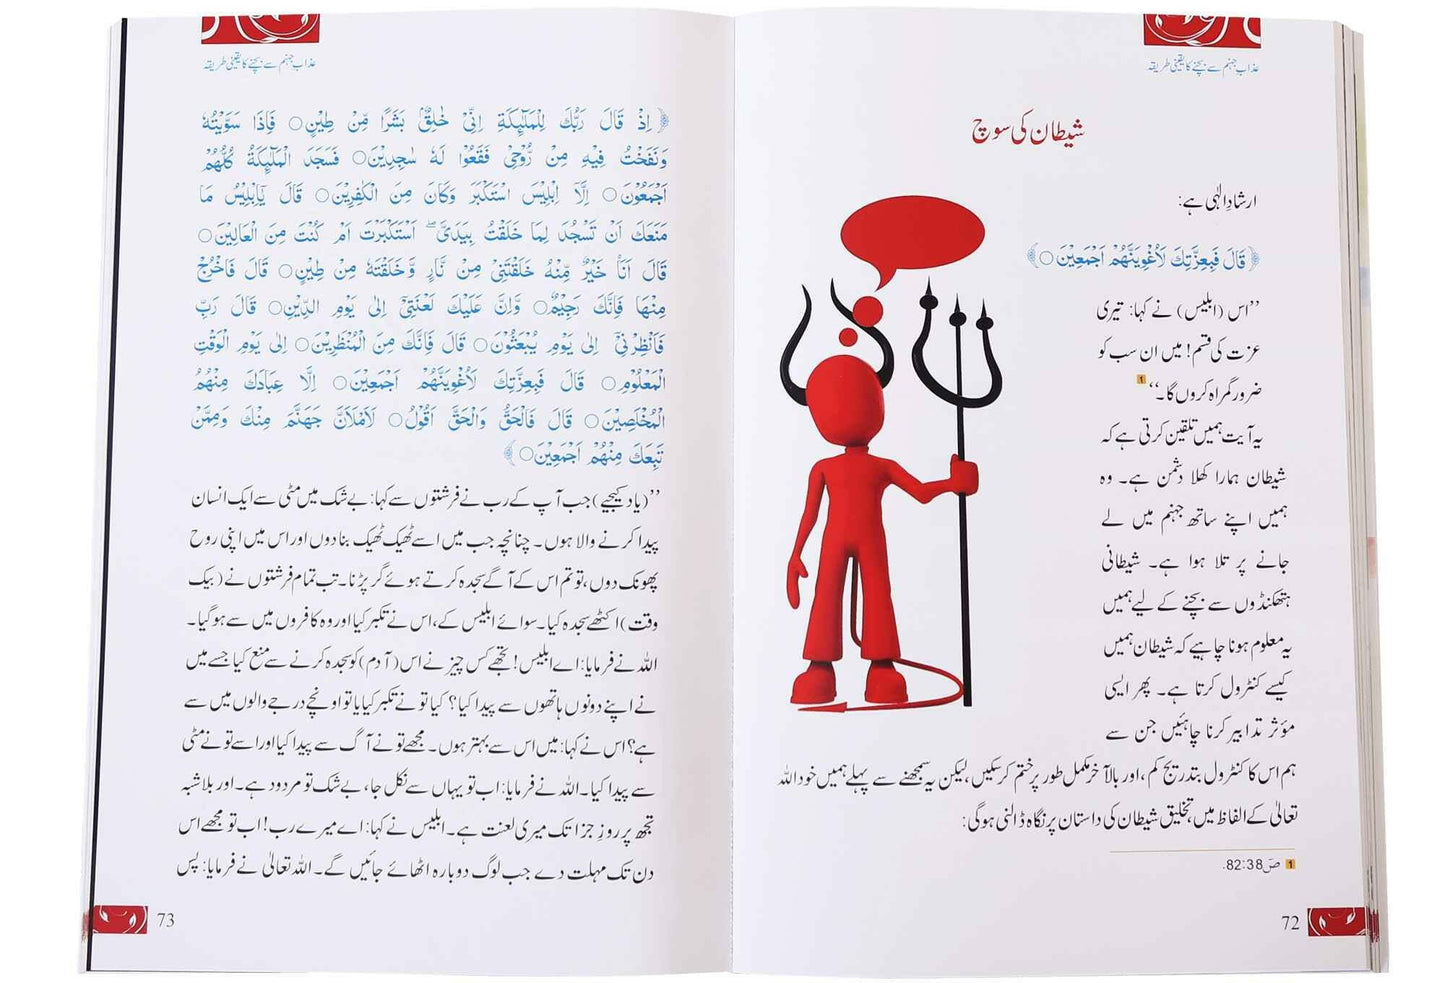 عذاب جہنم سے بچنے کا یقینی طریقہ
شیطان کی سوچ
ارشادِ الٰہی ہے:
﴿قَالَ فَبِعِزَّتِكَ لَاُغْوِيَنَّهُمْ اَجْمَعِيْنَ○﴾
’’اس (ابلیس) نے کہا: تیری
عزت کی قسم! میں ان سب کو
ضرور گمراہ کروں گا۔‘‘ 1
یہ آیت ہمیں تلقین کرتی ہے کہ
شیطان ہمارا کھلا دشمن ہے۔ وہ
ہمیں اپنے ساتھ جہنم میں لے
جانے پر تلا ہوا ہے۔ شیطانی
ہتھکنڈوں سے بچنے کے لیے ہمیں
یہ معلوم ہونا چاہیے کہ شیطان ہمیں
کیسے کنٹرول کرتا ہے۔ پھر ایسی
مؤثر تدابیر کرنا چاہئیں جن سے
ہم اس کا کنٹرول بتدریج کم، اور بالآخر مکمل طور پر ختم کر سکیں، لیکن یہ سمجھنے سے پہلے ہمیں خود اللہ
تعالیٰ کے الفاظ میں، تخلیق شیطان کی داستان پر نگاہ ڈالنی ہو گی:
1 صٓ 82:38.
72
عذاب جہنم سے بچنے کا یقینی طریقہ
﴿اِذْ قَالَ رَبُّكَ لِلْمَلٰٓىِٕكَةِ اِنِّيْ خَالِقٌۢ بَشَرًا مِّنْ طِيْنٍ○ فَاِذَا سَوَّيْتُهٗ
وَنَفَخْتُ فِيْهِ مِنْ رُّوْحِيْ فَقَعُوْا لَهٗ سٰجِدِيْنَ○ فَسَجَدَ الْمَلٰٓىِٕكَةُ كُلُّهُمْ
اَجْمَعُوْنَ○ اِلَّآ اِبْلِيْسَ اسْتَكْبَرَ وَكَانَ مِنَ الْكٰفِرِيْنَ○ قَالَ يٰٓاِبْلِيْسُ مَا
مَنَعَكَ اَنْ تَسْجُدَ لِمَا خَلَقْتُ بِيَدَيَّ ۖ اَسْتَكْبَرْتَ اَمْ كُنْتَ مِنَ الْعَالِيْنَ○
قَالَ اَنَا خَيْرٌ مِّنْهُ خَلَقْتَنِيْ مِنْ نَّارٍ وَّخَلَقْتَهٗ مِنْ طِيْنٍ○ قَالَ فَاخْرُجْ
مِنْهَا فَاِنَّكَ رَجِيْمٌ○ وَّاِنَّ عَلَيْكَ لَعْنَتِيْٓ اِلٰى يَوْمِ الدِّيْنِ○ قَالَ رَبِّ
فَاَنْظِرْنِيْٓ اِلٰى يَوْمِ يُبْعَثُوْنَ○ قَالَ فَاِنَّكَ مِنَ الْمُنْظَرِيْنَ○ اِلٰى يَوْمِ الْوَقْتِ
الْمَعْلُوْمِ○ قَالَ فَبِعِزَّتِكَ لَاُغْوِيَنَّهُمْ اَجْمَعِيْنَ○ اِلَّا عِبَادَكَ مِنْهُمُ
الْمُخْلَصِيْنَ○ قَالَ فَالْحَقُّ وَالْحَقَّ اَقُوْلُ○ لَاَمْلَاَنَّ جَهَنَّمَ مِنْكَ وَمِمَّنْ
تَبِعَكَ مِنْهُمْ اَجْمَعِيْنَ○﴾
’’(یاد کیجیے) جب آپ کے رب نے فرشتوں سے کہا: بے شک میں مٹی سے ایک انسان
پیدا کرنے والا ہوں۔ چنانچہ جب میں اسے ٹھیک ٹھیک بنا دوں اور اس میں اپنی روح
پھونک دوں، تو تم اس کے آگے سجدہ کرتے ہوئے گر پڑنا۔ تب تمام فرشتوں نے (بیک
وقت) اکٹھے سجدہ کیا۔ سوائے ابلیس کے، اس نے تکبر کیا اور وہ کافروں میں سے ہو گیا۔
اللہ نے فرمایا: اے ابلیس! تجھے کس چیز نے اس (آدم) کو سجدہ کرنے سے منع کیا جسے میں
نے اپنے دونوں ہاتھوں سے پیدا کیا؟ کیا تو نے تکبر کیا یا تو اونچے درجے والوں میں سے
ہے؟ اس نے کہا: میں اس سے بہتر ہوں۔ مجھے تو نے آگ سے پیدا کیا اور اسے تو نے مٹی
سے پیدا کیا۔ اللہ نے فرمایا: اب تو یہاں سے نکل جا، بے شک تو مردود ہے۔ اور بلاشبہ
تجھ پر روزِ جزا تک میری لعنت ہے۔ ابلیس نے کہا: اے میرے رب! اب تو مجھے اس
دن تک مہلت دے جب لوگ دوبارہ اٹھائے جائیں گے۔ اللہ تعالیٰ نے فرمایا: پس
73